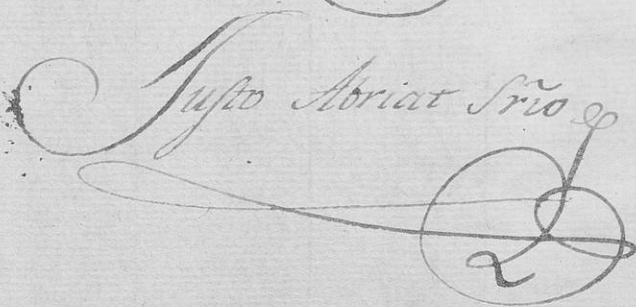 Justo Abriat Srio